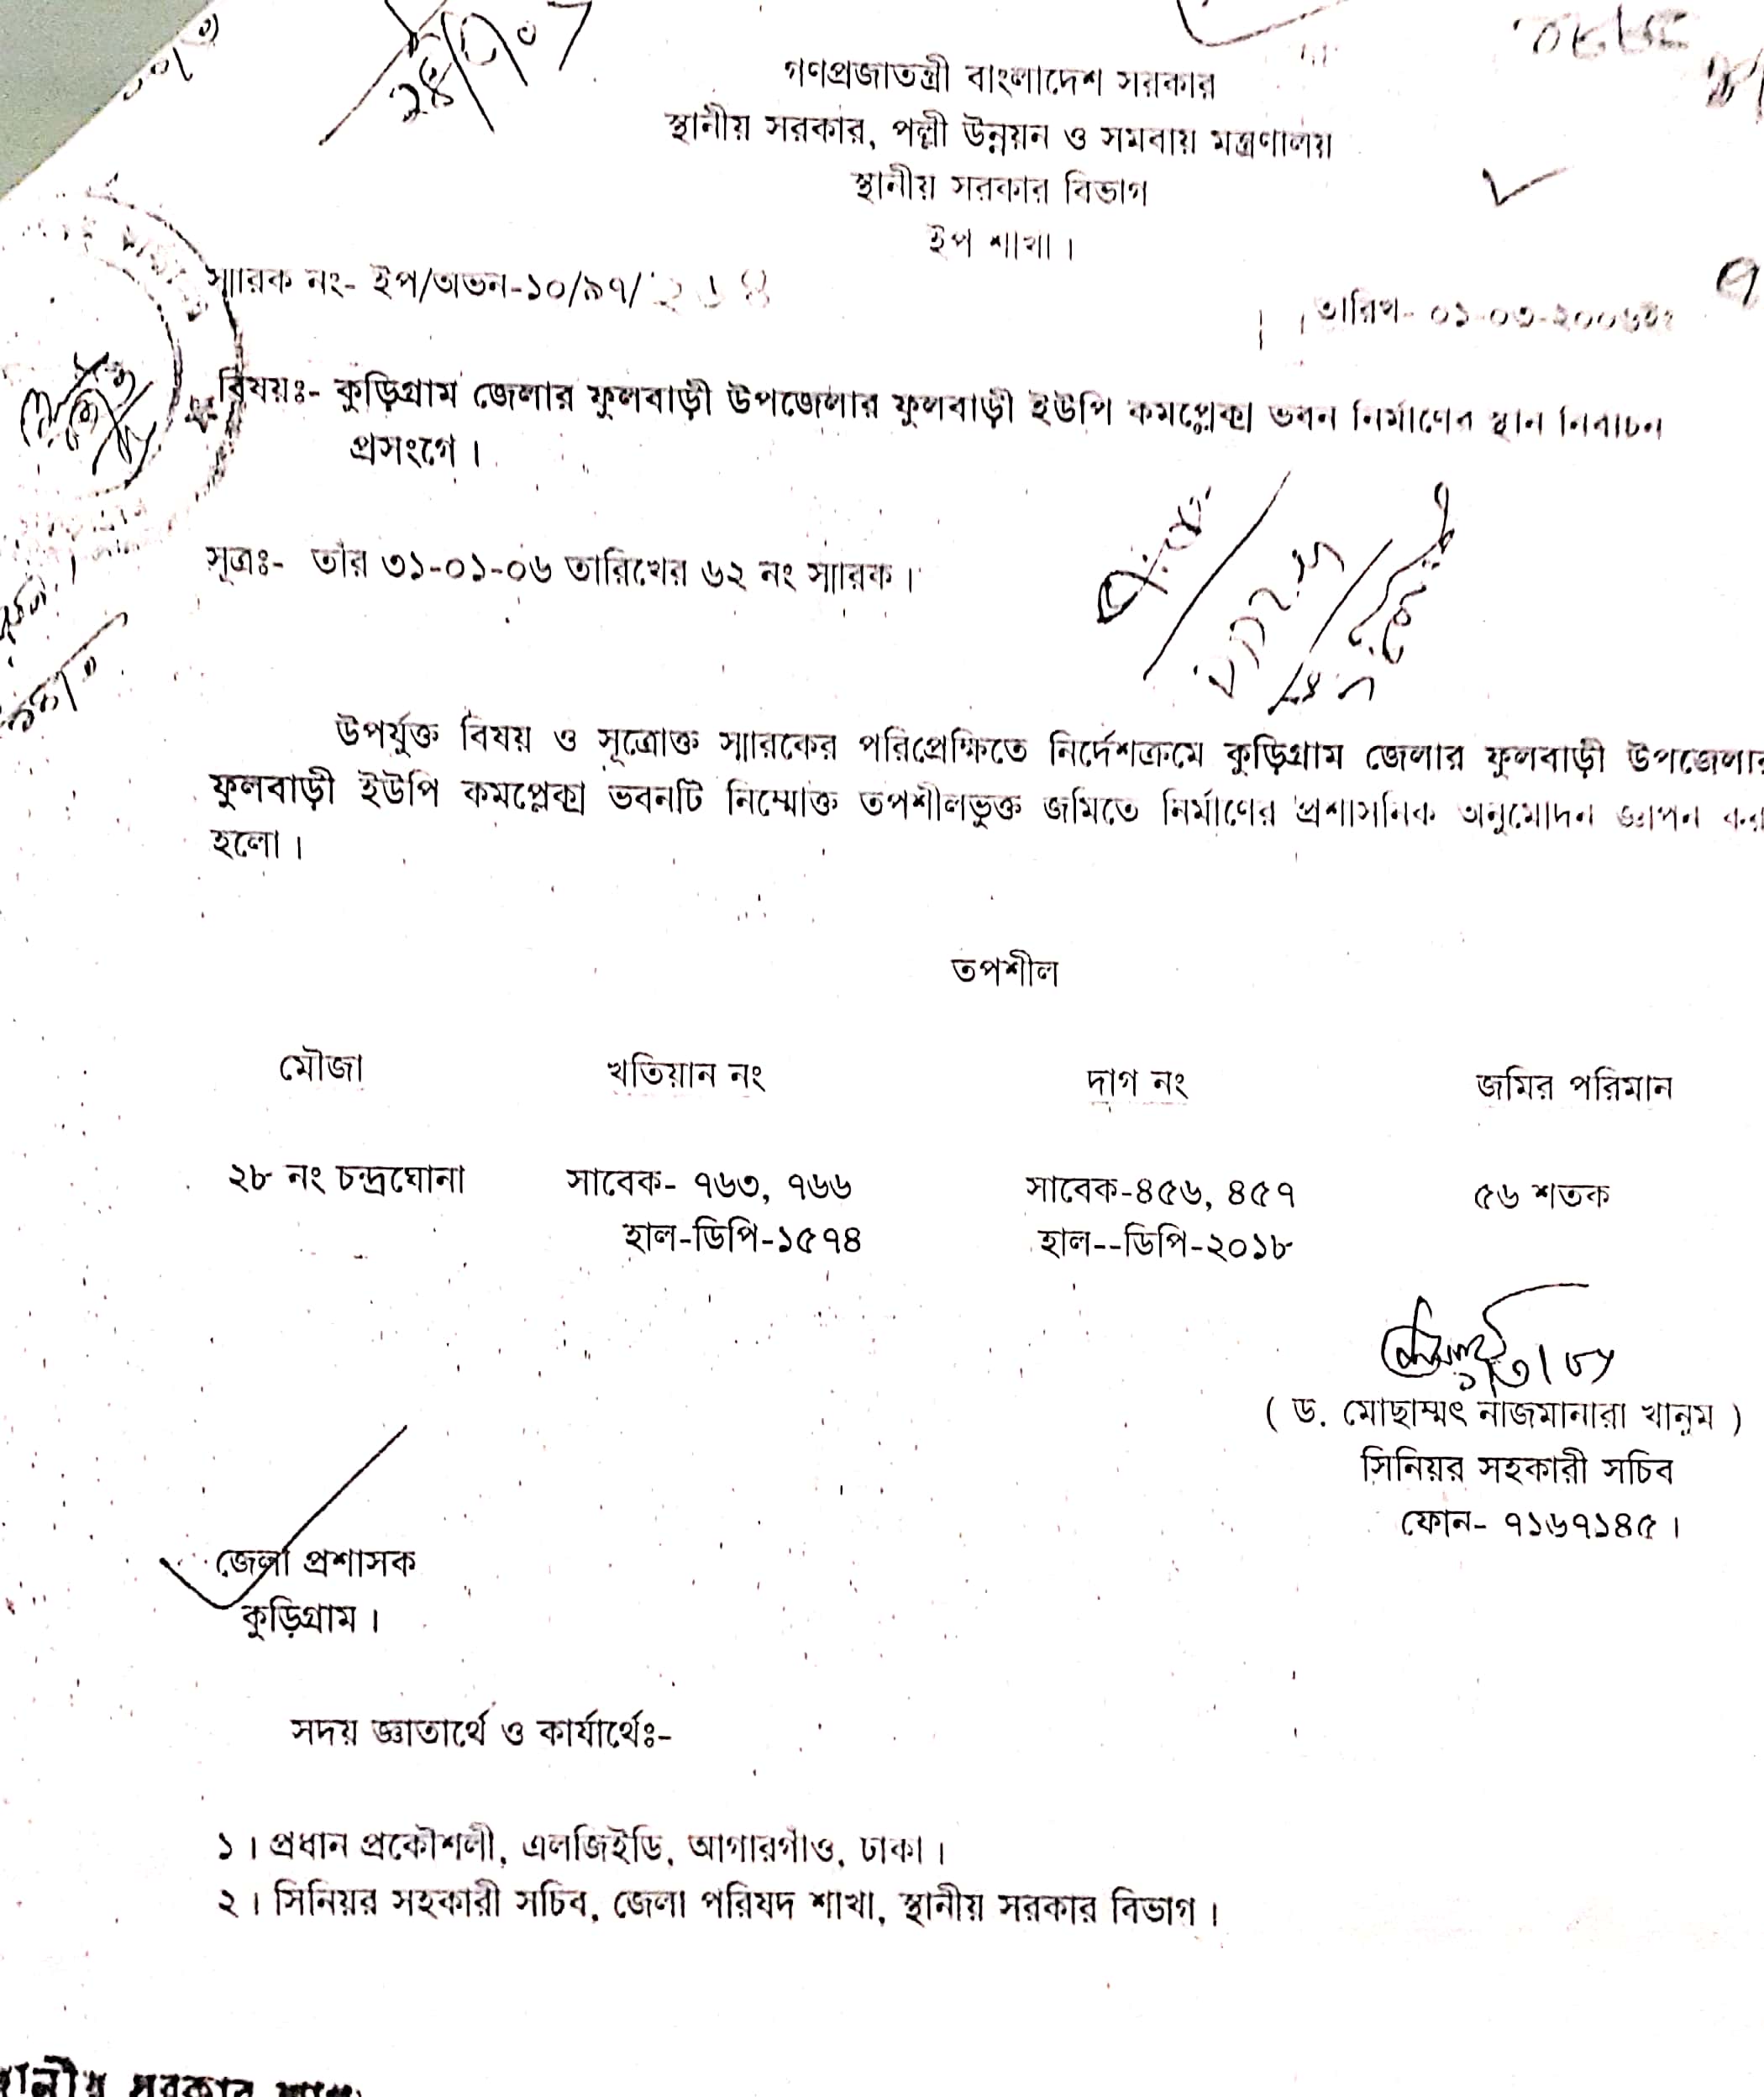 গণপ্রজাতন্ত্রী বাংলাদেশ সরকার
স্থানীয় সরকার, পল্লী উন্নয়ন ও সমবায় মন্ত্রণালয়
স্থানীয় সরকার বিভাগ
ইপ শাখা।
স্মারক নং- ইপ/অভন-১০/৯৭/
তারিখ- ০১-০৩-২০০৬ইং
বিষয়ঃ- কুড়িগ্রাম জেলার ফুলবাড়ী উপজেলার ফুলবাড়ী ইউপি কমপ্লেক্স ভবন নির্মাণের স্থান নির্বাচন
প্রসংগে।
সূত্রঃ- তাঁর ৩১-০১-০৬ তারিখের ৬২ নং স্মারক।
উপর্যুক্ত বিষয় ও সূত্রোক্ত স্মারকের পরিপ্রেক্ষিতে নির্দেশক্রমে কুড়িগ্রাম জেলার ফুলবাড়ী উপজেলার
ফুলবাড়ী ইউপি কমপ্লেক্স ভবনটি নিম্মোক্ত তপশীলভুক্ত জমিতে নির্মাণের প্রশাসনিক অনুমোদন জ্ঞাপন কর
হলো।
তপশীল
মৌজা খতিয়ান নং দাগ নং জমির পরিমান
২৮ নং চন্দ্রঘোনা সাবেক- ৭৬৩, ৭৬৬ সাবেক-৪৫৬, ৪৫৭ ৫৬ শতক
হাল-ডিপি-১৫৭৪ হাল--ডিপি-২০১৮
( ড. মোছাম্মৎ নাজমানারা খানুম )
সিনিয়র সহকারী সচিব
ফোন- ৭১৬৭১৪৫।
জেলা প্রশাসক
কুড়িগ্রাম।
সদয় জ্ঞাতার্থে ও কার্যার্থেঃ-
১। প্রধান প্রকৌশলী, এলজিইডি, আগারগাঁও, ঢাকা।
২। সিনিয়র সহকারী সচিব, জেলা পরিষদ শাখা, স্থানীয় সরকার বিভাগ।